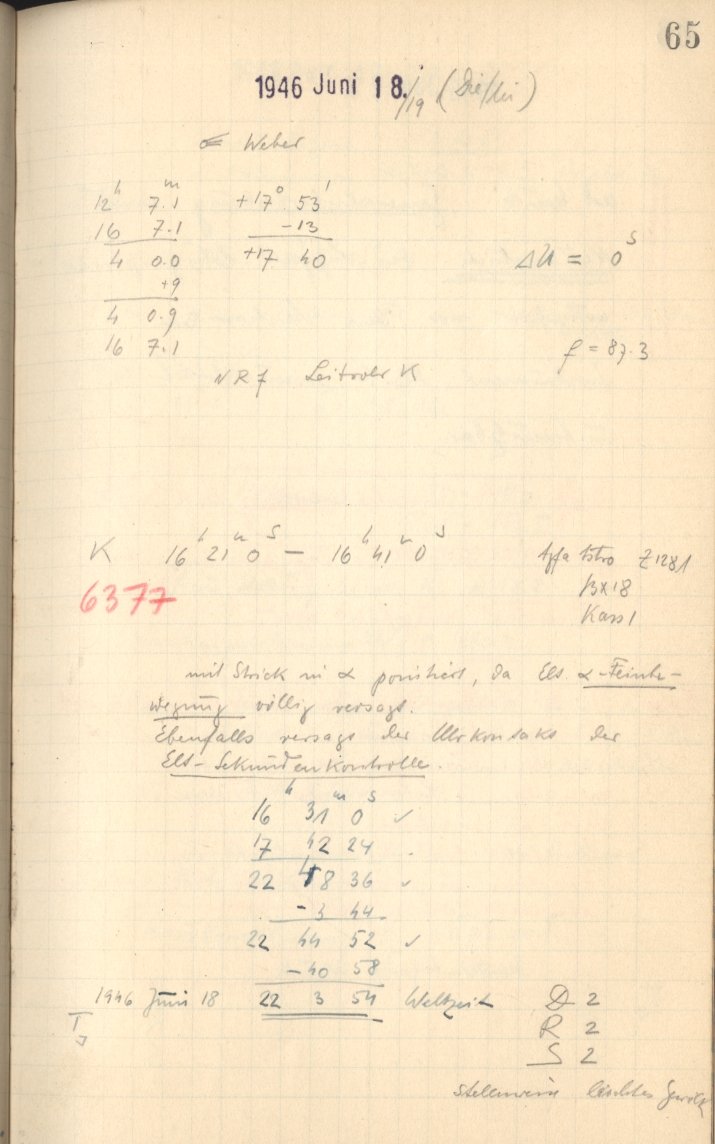 65
1946 Juni 18./19 (Die/Mi)
Weber
12h 7.1m +17° 53'
16 7.1 -13
4 0.0 +17 40 ΔU = 0s
+9
4 0.9
16 7.1 f = 87.3
NR 7 Leitrohr K
K 16h 21m 0s - 16h 41m 0s Agfa Astro Z1281
6377 13x18
Kass 1
mit Strick in α positiert, da Elt. α-Feinbe-
wegung völlig versagt.
Ebenfalls versagt der Uhrkontakt der
Elt-Sekundenkontrolle.
16h 31m 0s ✓
17 42 24
22 48 36 ✓
-3 44
22 44 52 ✓
-40 58
1946 Juni 18 22 3 54 Weltzeit D 2
R 2
S 2
stellenweise leichtes Gewölk